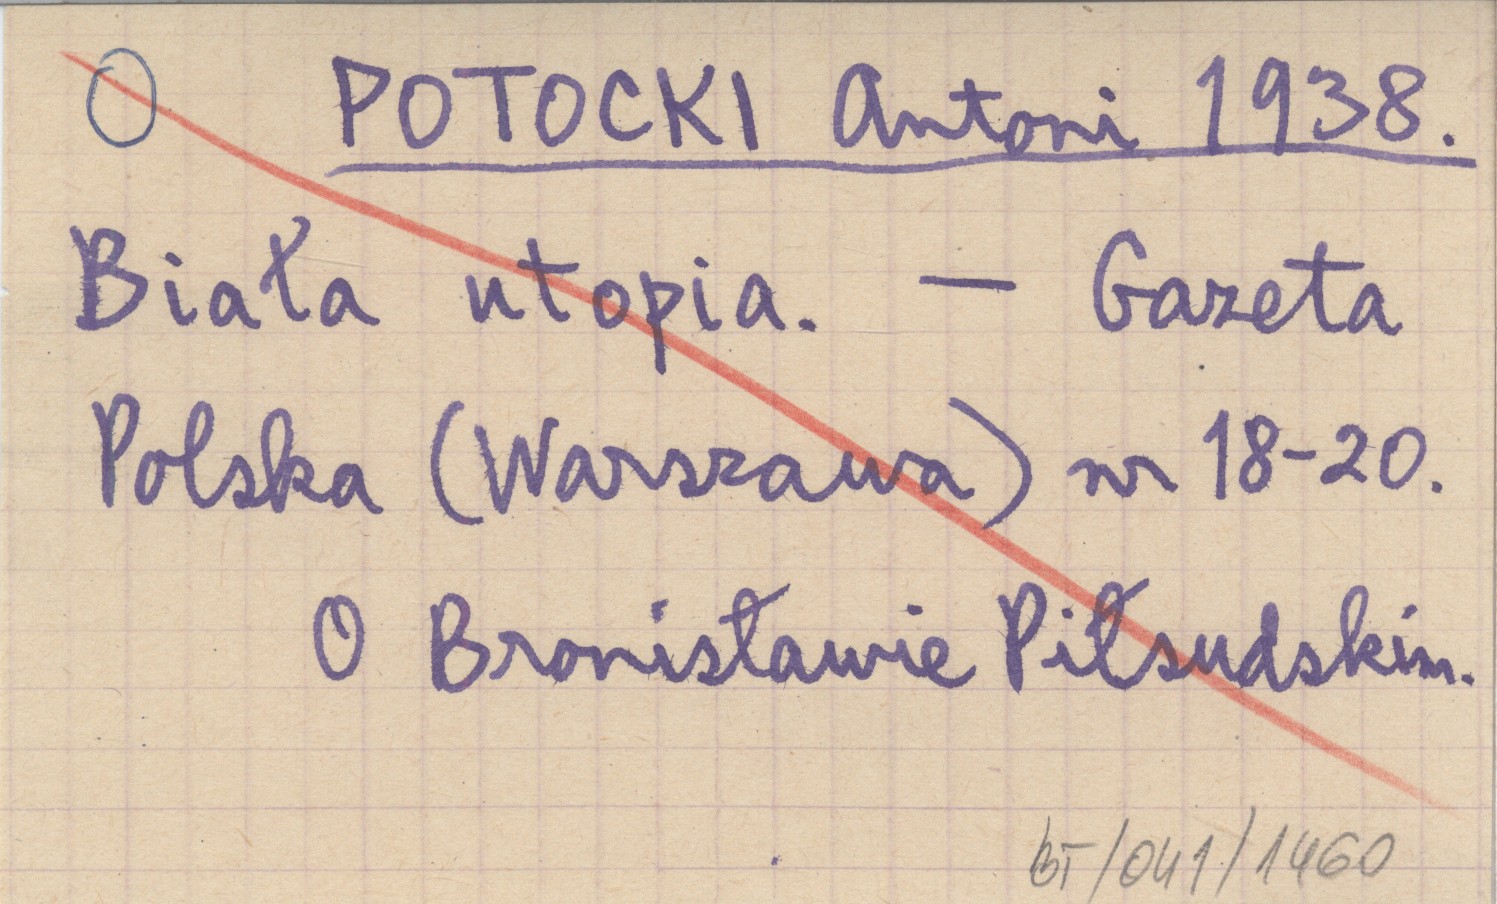 O POTOCKI Antoni 1938.
Biała utopia. — Gazeta
Polska (Warszawa) nr 18-20.
O Bronisławie Piłsudskim.
BT/041/1460